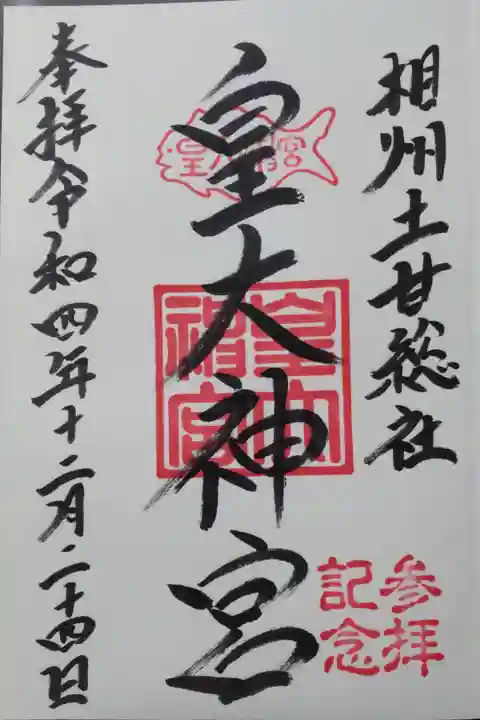 相州土甘総社
参拝
記念
皇大神宮
皇大神宮
皇大
神宮
奉拝令和四年十二月二十四日